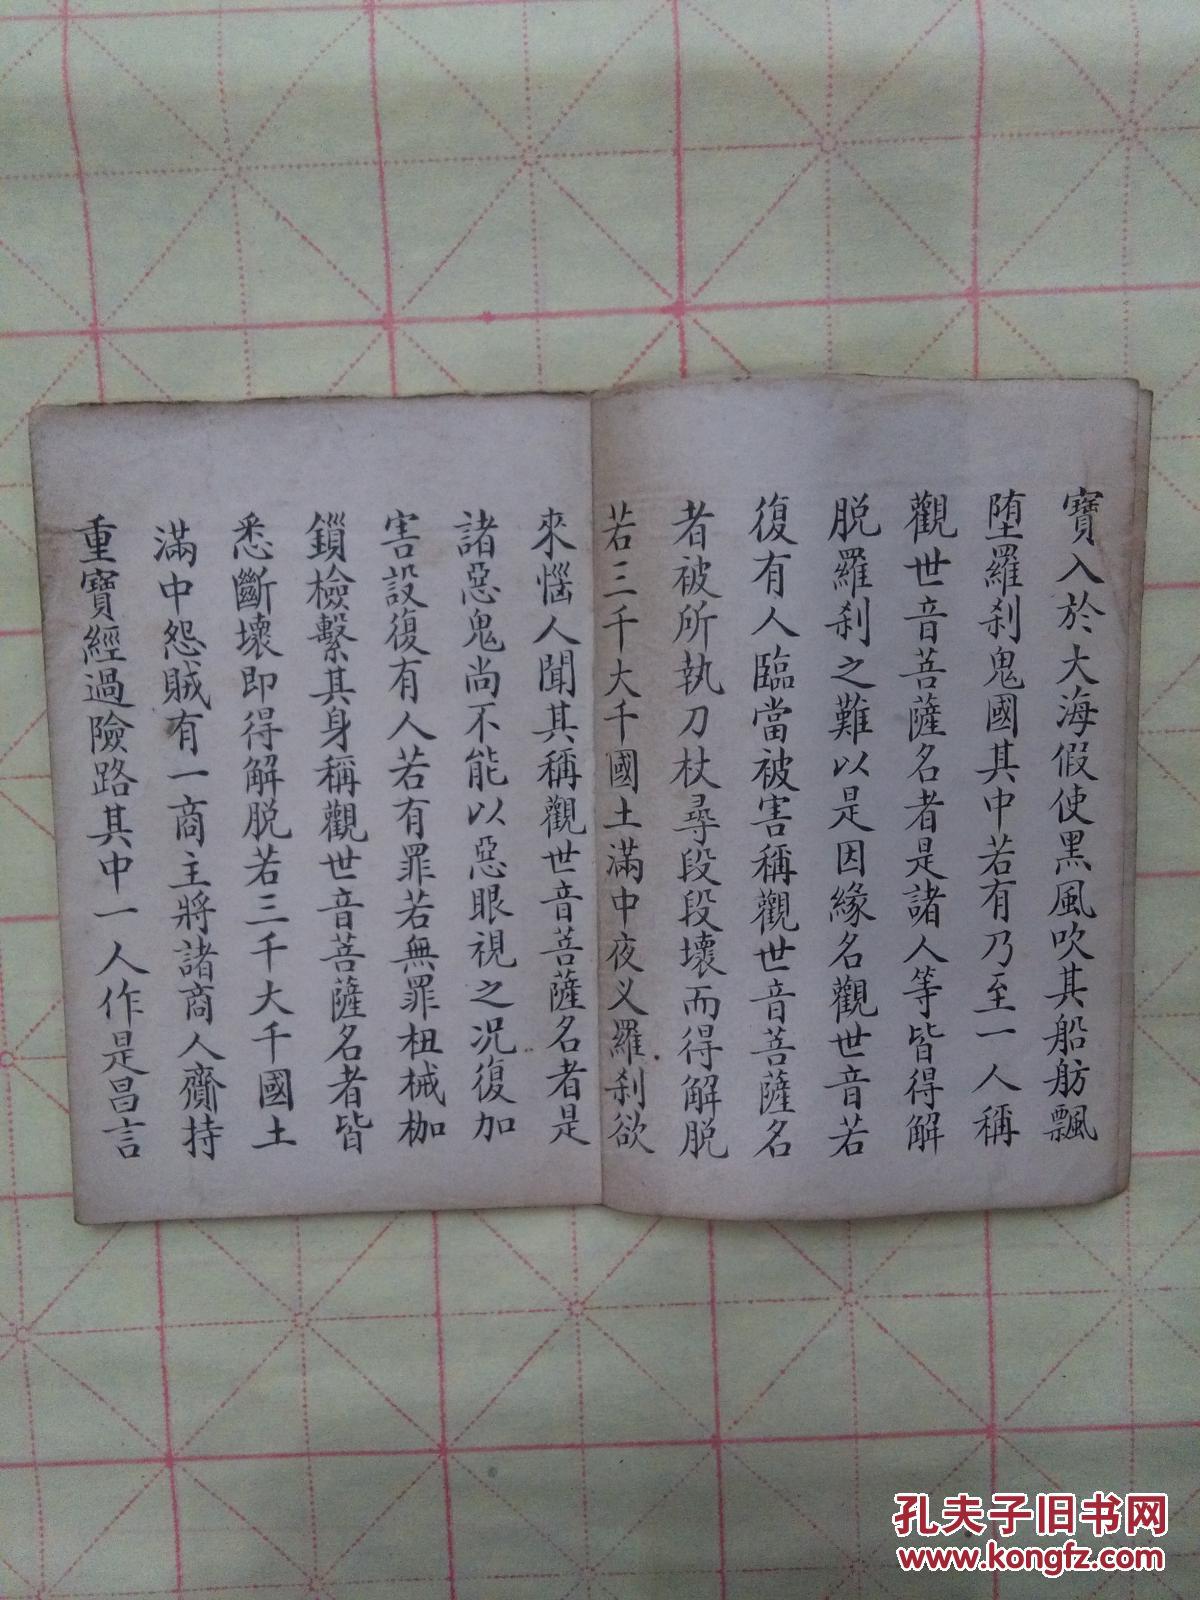 寶入於大海假使黑風吹其船舫飄
堕羅刹鬼國其中若有乃至一人稱
觀世音菩薩名者是諸人等皆得解
脱羅刹之難以是因緣名觀世音若
復有人臨當被害稱觀世音菩薩名
者被所執刀杖尋段段壞而得解脱
若三千大千國土滿中夜义羅刹欲
來惱人聞其稱觀世音菩薩名者是
諸惡鬼尚不能以惡眼視之况復加
害設復有人若有罪若無罪杻械枷
鎖檢繫其身稱觀世音菩薩名者皆
悉斷壞即得解脱若三千大千國土
滿中怨賊有一商主將諸商人齎持
重寶經過險路其中一人作是昌言
孔夫子旧书网
www.kongfz.com